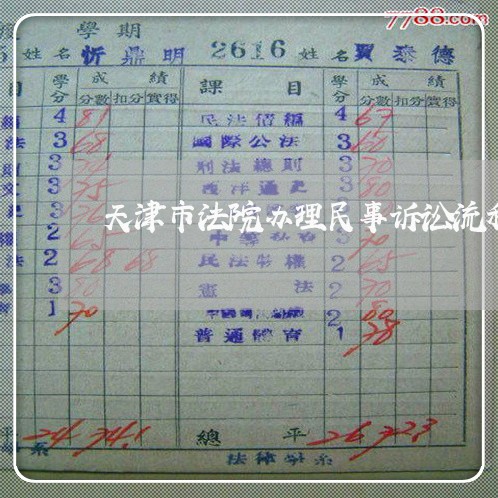 7788.com
學期
5 姓名 忻鼎明 2616 姓名 賈泰德
目 學分 成績 分數 扣分 實得 課目 學分 成績 分數 扣分 實得
4 81 民法債編 4 67
法 3 68 國際公法 3 60
3 刑法總則 3 70
3 75 西洋通史 3 80
天津市法院办理民事诉讼流程
2 65 3 70
法 2 68 68 民法物權 2 65
3 80 憲法 2 70
1 70 2 80
普通體育 1 78
平 24 74.1 總平 26 72.3
系 法律學系